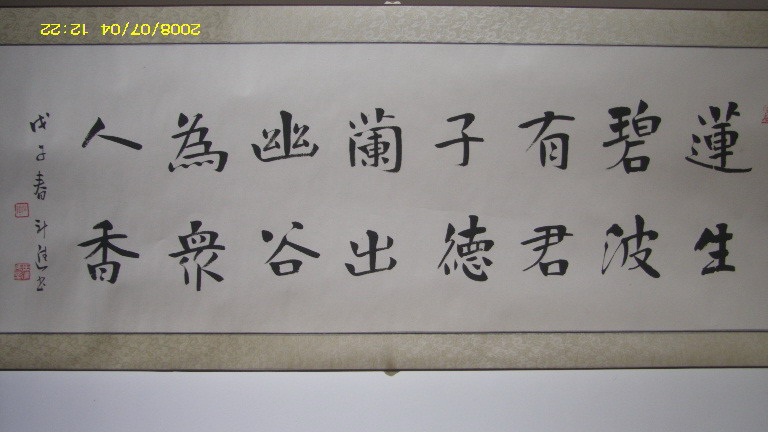 蓮生
碧波
有君
子德
蘭出
幽谷
為衆
人香
戊子春
2008/07/04 12:22